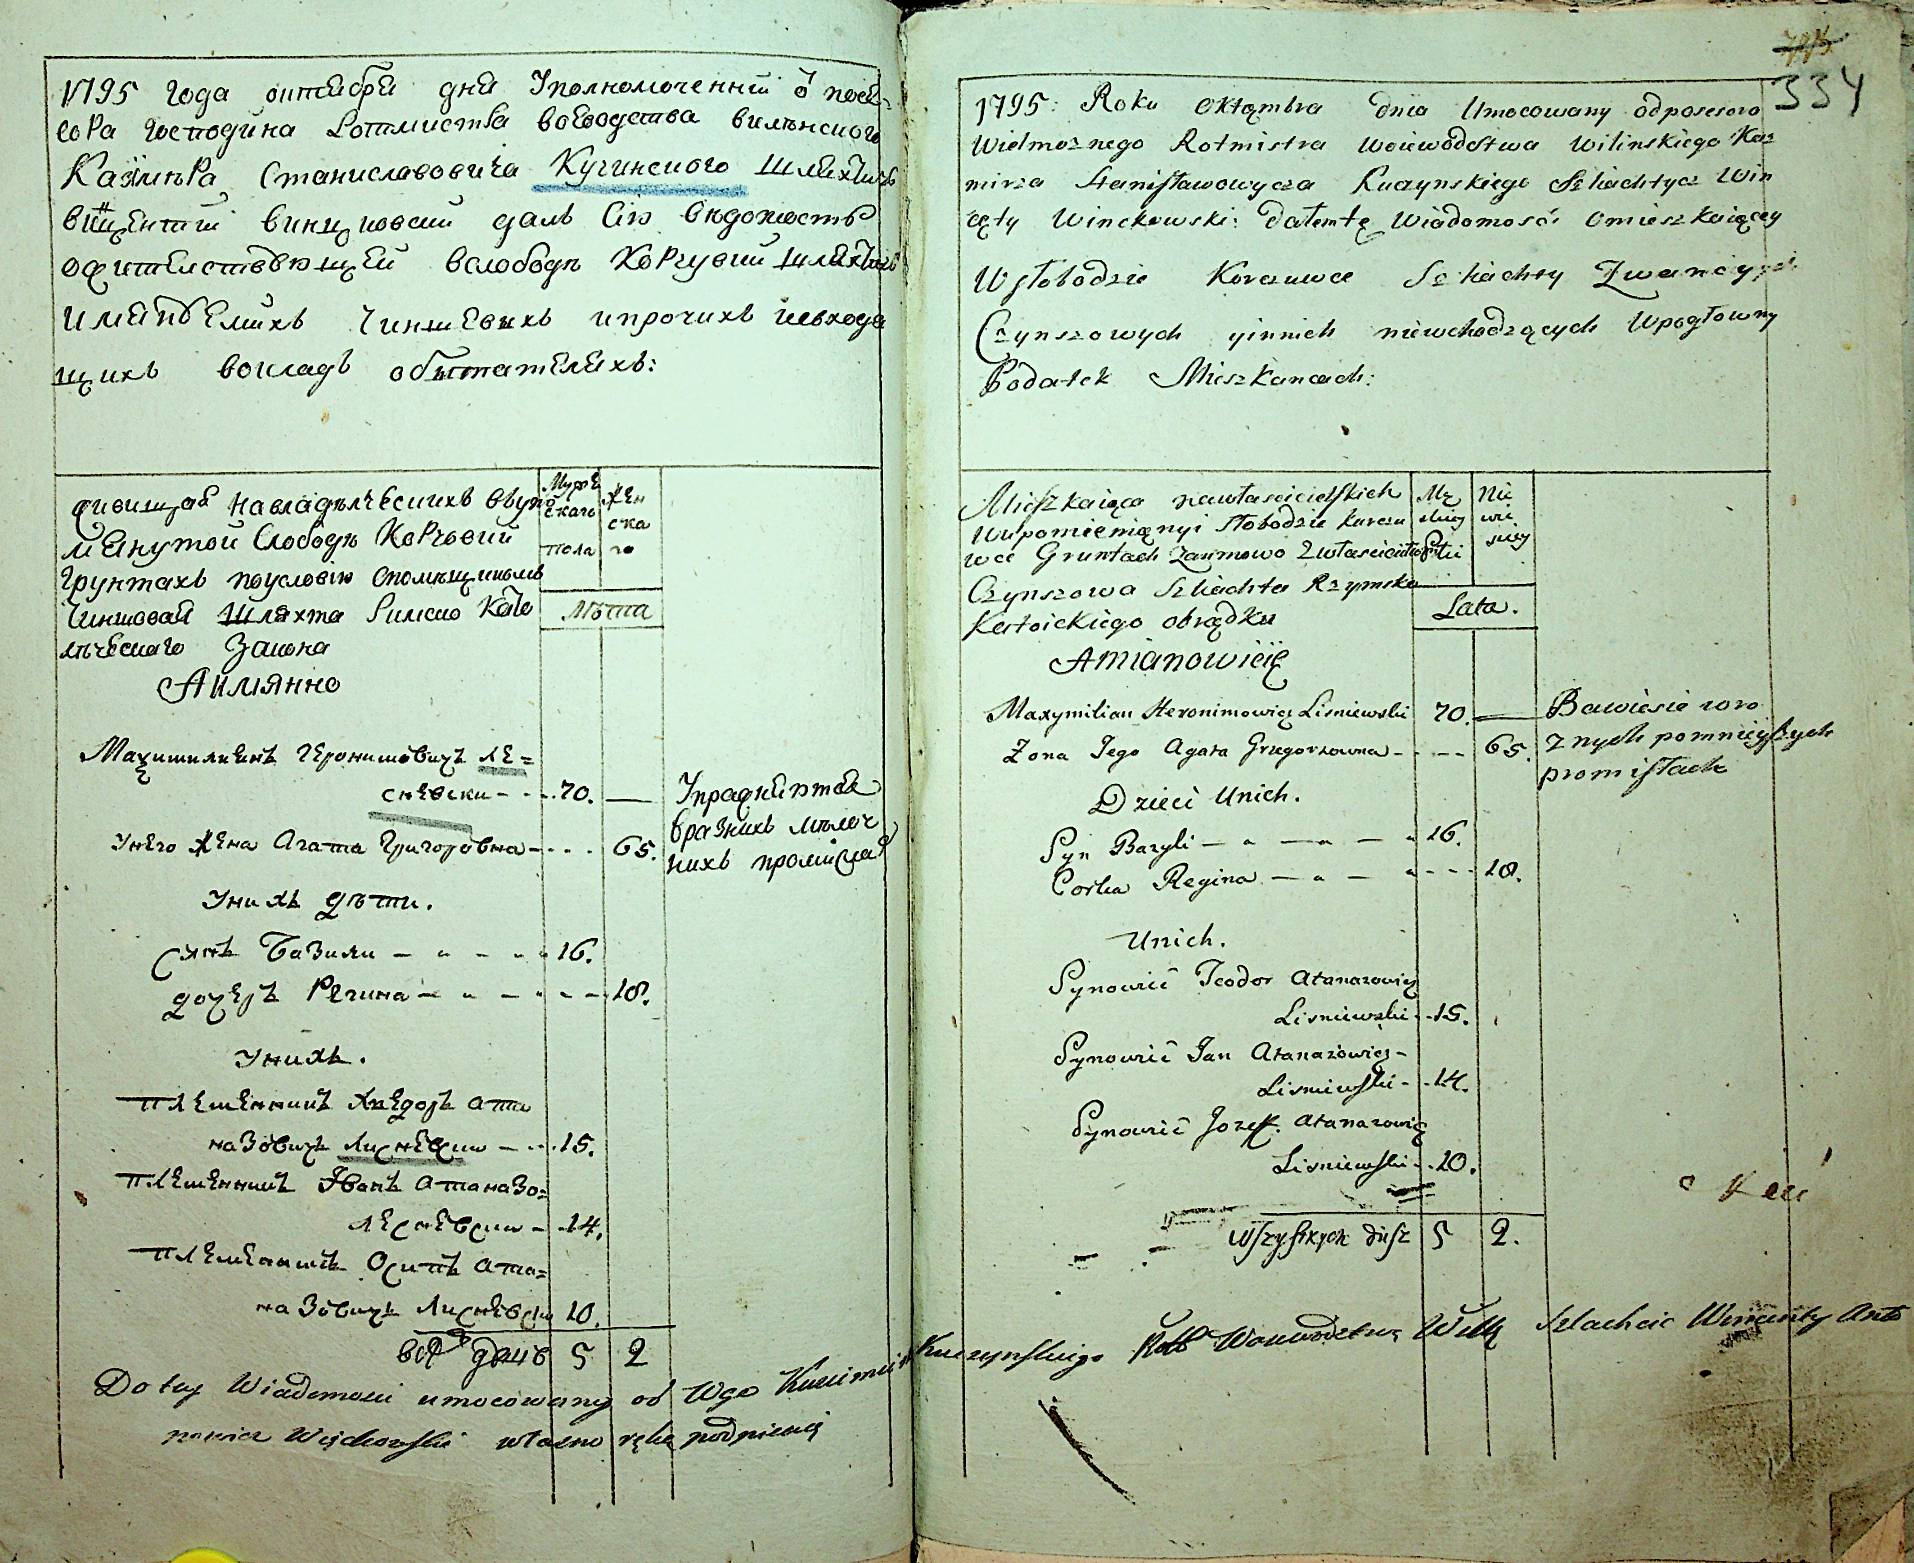 1795 года октебре дне Уполномоченній ѿ посе-
сора господина Ротмистра воеводства виленского
Казимѣра Станиславовича Кучинского шляхтичъ
винцентій винцковскій далъ сію вѣдомость
о жителствующей вслободѣ Корчувки шляхти
именуемихъ Чиншевихъ ипрочихъ невходя
щихъ вокладъ обитателехъ:
живищая навладѣлческихъ вупо
менутой Слободѣ Корчовки
грунтахъ поусловію спомѣщикомъ
Чиншовая Шляхта Римско Като
лѣческаго Закона
Аимянно
Мужескаго пола
Женска го
Лѣта
Махимилиенъ Геронимовичъ Ле=
сневски - - - 70. —
Унего жена Агата Григоровна - - - - 65.
Упражняется
вразнихъ мѣлоч
нихъ промісла
Унихъ дѣти.
Синъ Базили - - - - - 16.
дочеръ Регина - - - - - - 18.
Унихъ.
племенникъ Хведоръ Ата
назовичъ Лисневски - - - 15.
племенникъ Иванъ Атаназо=
Лесневски - - 14.
племенникъ Осипъ Ата=
назовичъ Лисневски 10.
всѣ душъ 5 2
Do tey Wiadomosci umocowany od Wgo Kazimierza
Kuczynskiego Rott Woiewodztwa Wilg Szlachcic Wincenty Anto
nowicz Węckowski własno ręką podpisuię
334
1795: Roku Oktąmbra dnia Umocowany odposesora
Wielmoznego Rotmistra woiewodstwa wilinskiego Kaz
mirza Stanisławowycza Kuczynskiego Szliachtycz Win
cęty Winckowski: dałemtę Wiadomość Omieszkaiącey
Wsłobodzie Korczuwce Szliachty Zwanciych
Czynszowych yinnich niewchodzących Wpogłowny
Podatek Mieszkancach:
Mieszkaiąca nawłascicielskich
Wupomienięnyi Słobodzie Korczu
wce Gruntach Zaumowo Zwłascicielem
Czynszowa Szliachta Rzymsko
Katoickiego obrządku
Amianowicię
Mę skiey Płci
Nie wie skiey
Lata.
Maxymilian Heronimowicz Lisniewski 70. —
Zona Jego Agata Grzegorzowna - - - - - 65.
Bawiesie wro
Znych pomnieyszych
promisłach
Dzieci Unich.
Syn Bazyli — - — - 16.
Corka Regina — - — - - - - 18.
Unich.
Synowić Teodor Atanazowicz
Lisniewski - - 15.
Synowić Jan Atanazowicz -
Lisniewski - - 14.
Synowić Jozef. Atanazowicz
Lisniewski - - 10.
Wszystkych dusz 5 2.